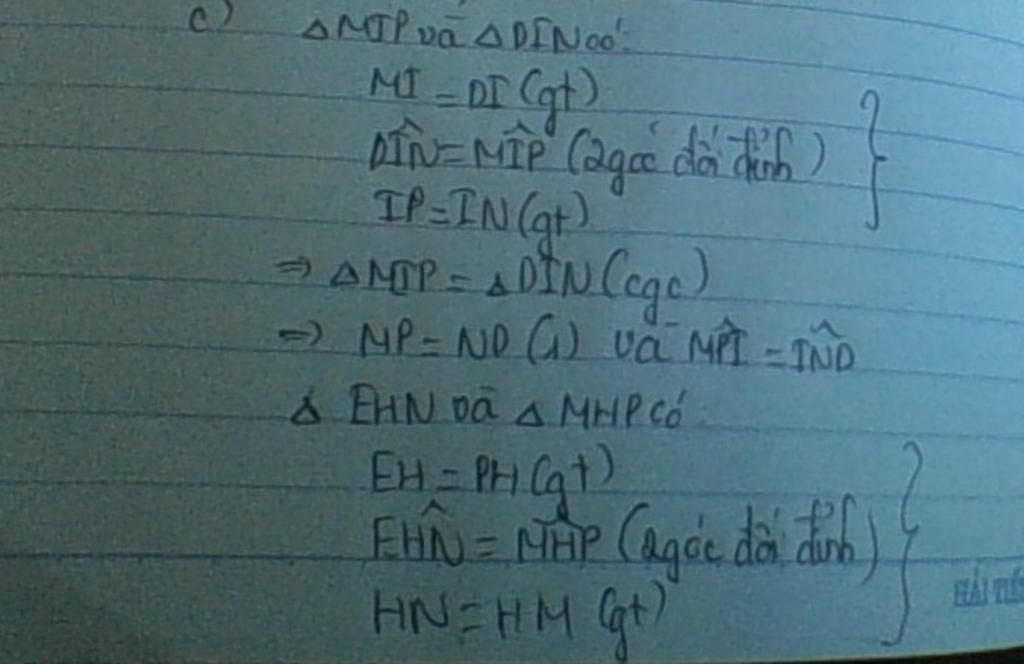 c) △MIP và △DIN có:
MI = DI (gt)
DIN̂ = MIP̂ (2 góc đối đỉnh)
IP = IN (gt)
⇒ △MIP = △DIN (cgc)
⇒ MP = ND (1) và MPÎ = IND̂
△ EHN và △ MHP có
EH = PH (gt)
EHN̂ = MHP̂ (2 góc đối đỉnh)
HN = HM (gt)
HẢI TIẾN